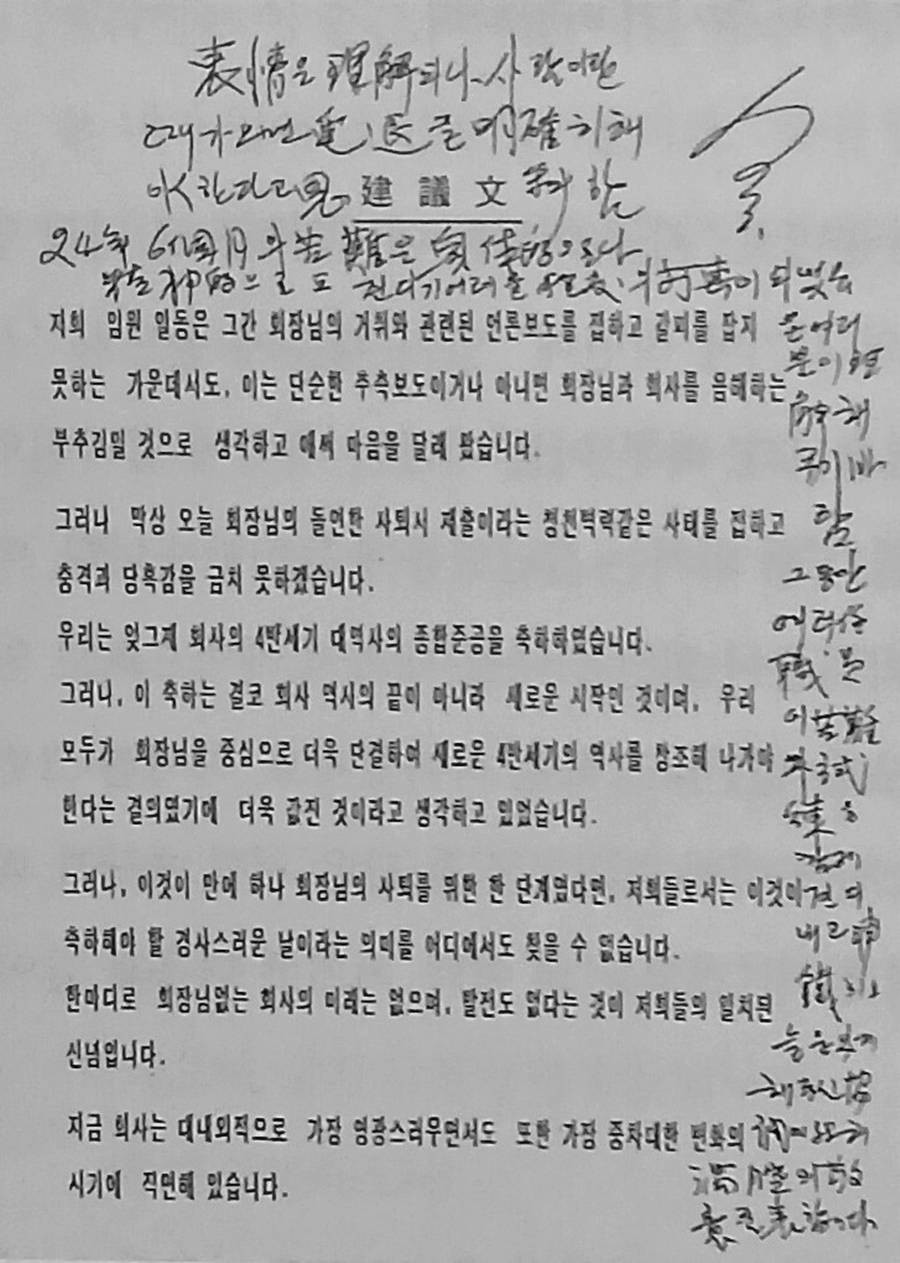 表情은 理解되나 사람이란
때가 오면 進退를 明確히 해
야 한다고 思 料함
建議文
24年 6個月의 苦難은 肉体的으로나
精神的으로도 견디기 어려울 程度의
저희 임원 일동은 그간 회장님의 거취와 관련된 언론보도를 접하고 갈피를 잡지
못하는 가운데서도, 이는 단순한 추측보도이거나 아니면 회장님과 회사를 음해하는
부추김일 것으로 생각하고 애써 마음을 달래 봤습니다.
그러나 막상 오늘 회장님의 돌연한 사퇴서 제출이라는 청천벽력같은 사태를 접하고
충격과 당혹감을 금치 못하겠습니다.
우리는 엊그제 회사의 4반세기 대역사의 종합준공을 축하하였습니다.
그러나, 이 축하는 결코 회사 역사의 끝이 아니라 새로운 시작인 것이며, 우리
모두가 회장님을 중심으로 더욱 단결하여 새로운 4반세기의 역사를 창조해 나가야
한다는 결의였기에 더욱 값진 것이라고 생각하고 있었습니다.
그러나, 이것이 만에 하나 회장님의 사퇴를 위한 한 단계였다면, 저희들로서는 이것이
축하해야 할 경사스러운 날이라는 의미를 어디에서도 찾을 수 없습니다.
한마디로 회장님없는 회사의 미래는 없으며, 발전도 없다는 것이 저희들의 일치된
신념입니다.
지금 회사는 대내외적으로 가장 영광스러우면서도 또한 가장 중차대한 변화의
시기에 직면해 있습니다.
은 여러
분이 理
解해
주기 바
람
그 동안
여러 任
職员
이 苦難
과 試
練을
함께
견디
내고 浦
鐵
해주신
滿腔의 敬
意를 表합니다